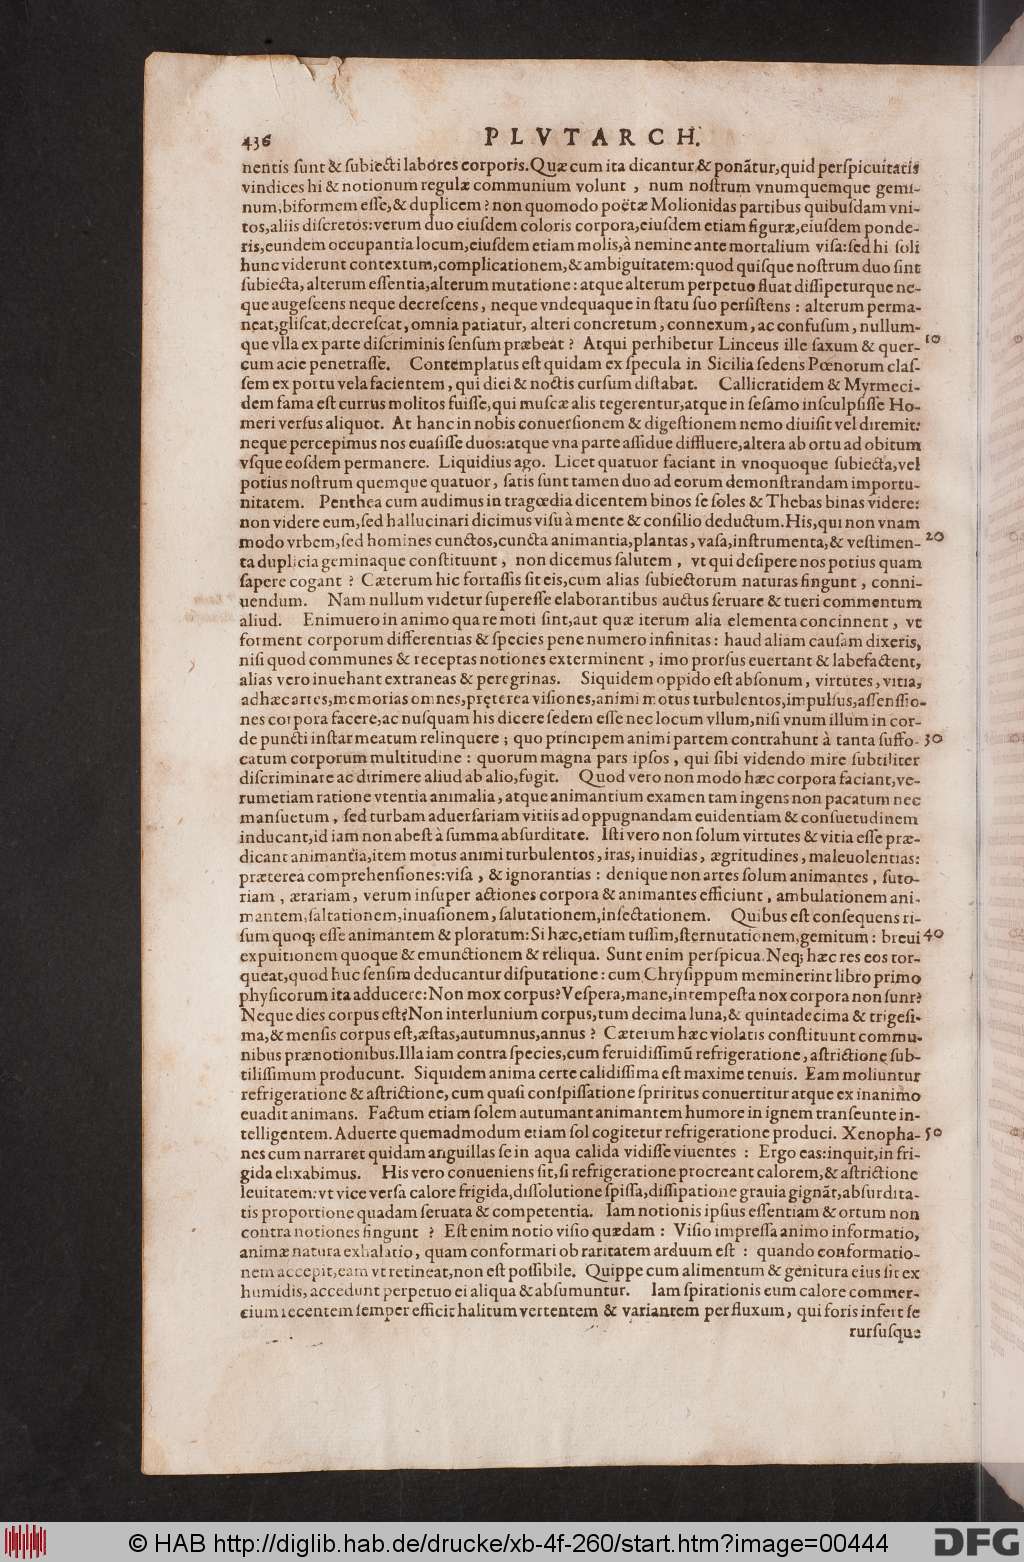 436
PLVTARCH.
nentis ſunt & ſubiecti labores corporis. Quæ cum ita dicantur & ponãtur, quid perſpicuitatis
vindices hi & notionum regulæ communium volunt, num noſtrum vnumquemque gemi-
num, biformem eſſe, & duplicem? non quomodo poëtæ Molionidas partibus quibuſdam vni-
tos, aliis diſcretos: verum duo eiuſdem coloris corpora, eiuſdem etiam figuræ, eiuſdem ponde-
ris, eundem occupantia locum, eiuſdem etiam molis, à nemine ante mortalium viſa: ſed hi ſoli
hunc viderunt contextum, complicationem, & ambiguitatem: quod quiſque noſtrum duo ſint
ſubiecta, alterum eſſentia, alterum mutatione: atque alterum perpetuo fluat diſſipeturque ne-
que augeſcens neque decreſcens, neque vndequaque in ſtatu ſuo perſiſtens: alterum perma-
neat, gliſcat, decreſcat, omnia patiatur, alteri concretum, connexum, ac confuſum, nullum-
que vlla ex parte diſcriminis ſenſum præbeat? Atqui perhibetur Linceus ille ſaxum & quer- 10
cum acie penetraſſe. Contemplatus eſt quidam ex ſpecula in Sicilia ſedens Pœnorum claſ-
ſem ex portu vela facientem, qui diei & noctis curſum diſtabat. Callicratidem & Myrmeci-
dem fama eſt currus molitos fuiſſe, qui muſcæ alis tegerentur, atque in ſeſamo inſculpſiſſe Ho-
meri verſus aliquot. At hanc in nobis conuerſionem & digeſtionem nemo diuiſit vel diremit:
neque percepimus nos euaſiſſe duos: atque vna parte aſſidue diffluere, altera ab ortu ad obitum
vſque eoſdem permanere. Liquidius ago. Licet quatuor faciant in vnoquoque ſubiecta, vel
potius noſtrum quemque quatuor, ſatis ſunt tamen duo ad eorum demonſtrandam importu-
nitatem. Penthea cum audimus in tragœdia dicentem binos ſe ſoles & Thebas binas videre:
non videre eum, ſed hallucinari dicimus viſu à mente & conſilio deductum. His, qui non vnam
modo vrbem, ſed homines cunctos, cuncta animantia, plantas, vaſa, inſtrumenta, & veſtimen- 20
ta duplicia geminaque conſtituunt, non dicemus ſalutem, vt qui deſipere nos potius quam
ſapere cogant? Cæterum hic fortaſſis ſit eis, cum alias ſubiectorum naturas fingunt, conni-
uendum. Nam nullum videtur ſupereſſe elaborantibus auctus ſeruare & tueri commentum
aliud. Enimuero in animo qua re moti ſint, aut quæ iterum alia elementa concinnent, vt
forment corporum differentias & ſpecies pene numero infinitas: haud aliam cauſam dixeris,
niſi quod communes & receptas notiones exterminent, imo prorſus euertant & labefactent,
alias vero inuehant extraneas & peregrinas. Siquidem oppido eſt abſonum, virtutes, vitia,
ad hæc artes, memorias omnes, pręterea viſiones, animi motus turbulentos, impulſus, aſſenſio-
nes corpora facere, ac nuſquam his dicere ſedem eſſe nec locum vllum, niſi vnum illum in cor-
de puncti inſtar meatum relinquere; quo principem animi partem contrahunt à tanta ſuffo- 30
catum corporum multitudine: quorum magna pars ipſos, qui ſibi videndo mire ſubtiliter
diſcriminare ac dirimere aliud ab alio, fugit. Quod vero non modo hæc corpora faciant, ve-
rumetiam ratione vtentia animalia, atque animantium examen tam ingens non pacatum nec
manſuetum, ſed turbam aduerſariam vitiis ad oppugnandam euidentiam & conſuetudinem
inducant, id iam non abeſt à ſumma abſurditate. Iſti vero non ſolum virtutes & vitia eſſe præ-
dicant animantia, item motus animi turbulentos, iras, inuidias, ægritudines, maleuolentias:
præterea comprehenſiones: viſa, & ignorantias: denique non artes ſolum animantes, ſuto-
riam, ærariam, verum inſuper actiones corpora & animantes efficiunt, ambulationem ani-
mantem, ſaltationem, inuaſionem, ſalutationem, inſectationem. Quibus eſt conſequens ri-
ſum quoq; eſſe animantem & ploratum: Si hæc, etiam tuſſim, ſternutationem, gemitum: breui 40
expuitionem quoque & emunctionem & reliqua. Sunt enim perſpicua. Neq; hæc res eos tor-
queat, quod huc ſenſim deducantur diſputatione: cum Chryſippum meminerint libro primo
phyſicorum ita adducere: Non mox corpus? Veſpera, mane, intempeſta nox corpora non ſunt?
Neque dies corpus eſt? Non interlunium corpus, tum decima luna, & quintadecima & trigeſi-
ma, & menſis corpus eſt, æſtas, autumnus, annus? Cæterum hæc violatis conſtituunt commu-
nibus prænotionibus. Illa iam contra ſpecies, cum feruidiſſimũ refrigeratione, aſtrictione ſub-
tiliſſimum producunt. Siquidem anima certe calidiſſima eſt maxime tenuis. Eam moliuntur
refrigeratione & aſtrictione, cum quaſi conſpiſſatione ſpriritus conuertitur atque ex inanimo
euadit animans. Factum etiam ſolem autumant animantem humore in ignem tranſeunte in-
telligentem. Aduerte quemadmodum etiam ſol cogitetur refrigeratione produci. Xenopha- 50
nes cum narraret quidam anguillas ſe in aqua calida vidiſſe viuentes: Ergo eas: inquit, in fri-
gida elixabimus. His vero conueniens ſit, ſi refrigeratione procreant calorem, & aſtrictione
leuitatem: vt vice verſa calore frigida, diſſolutione ſpiſſa, diſſipatione grauia gignãt, abſurdita-
tis proportione quadam ſeruata & competentia. Iam notionis ipſius eſſentiam & ortum non
contra notiones fingunt? Eſt enim notio viſio quædam: Viſio impreſſa animo informatio,
animæ natura exhalatio, quam conformari ob raritatem arduum eſt: quando conformatio-
nem accepit, eam vt retineat, non eſt poſſibile. Quippe cum alimentum & genitura eius ſit ex
humidis, accedunt perpetuo ei aliqua & abſumuntur. Iam ſpirationis eum calore commer-
cium recentem ſemper efficit halitum vertentem & variantem per fluxum, qui foris infert ſe
rurſuſque
© HAB http://diglib.hab.de/drucke/xb-4f-260/start.htm?image=00444
DFG